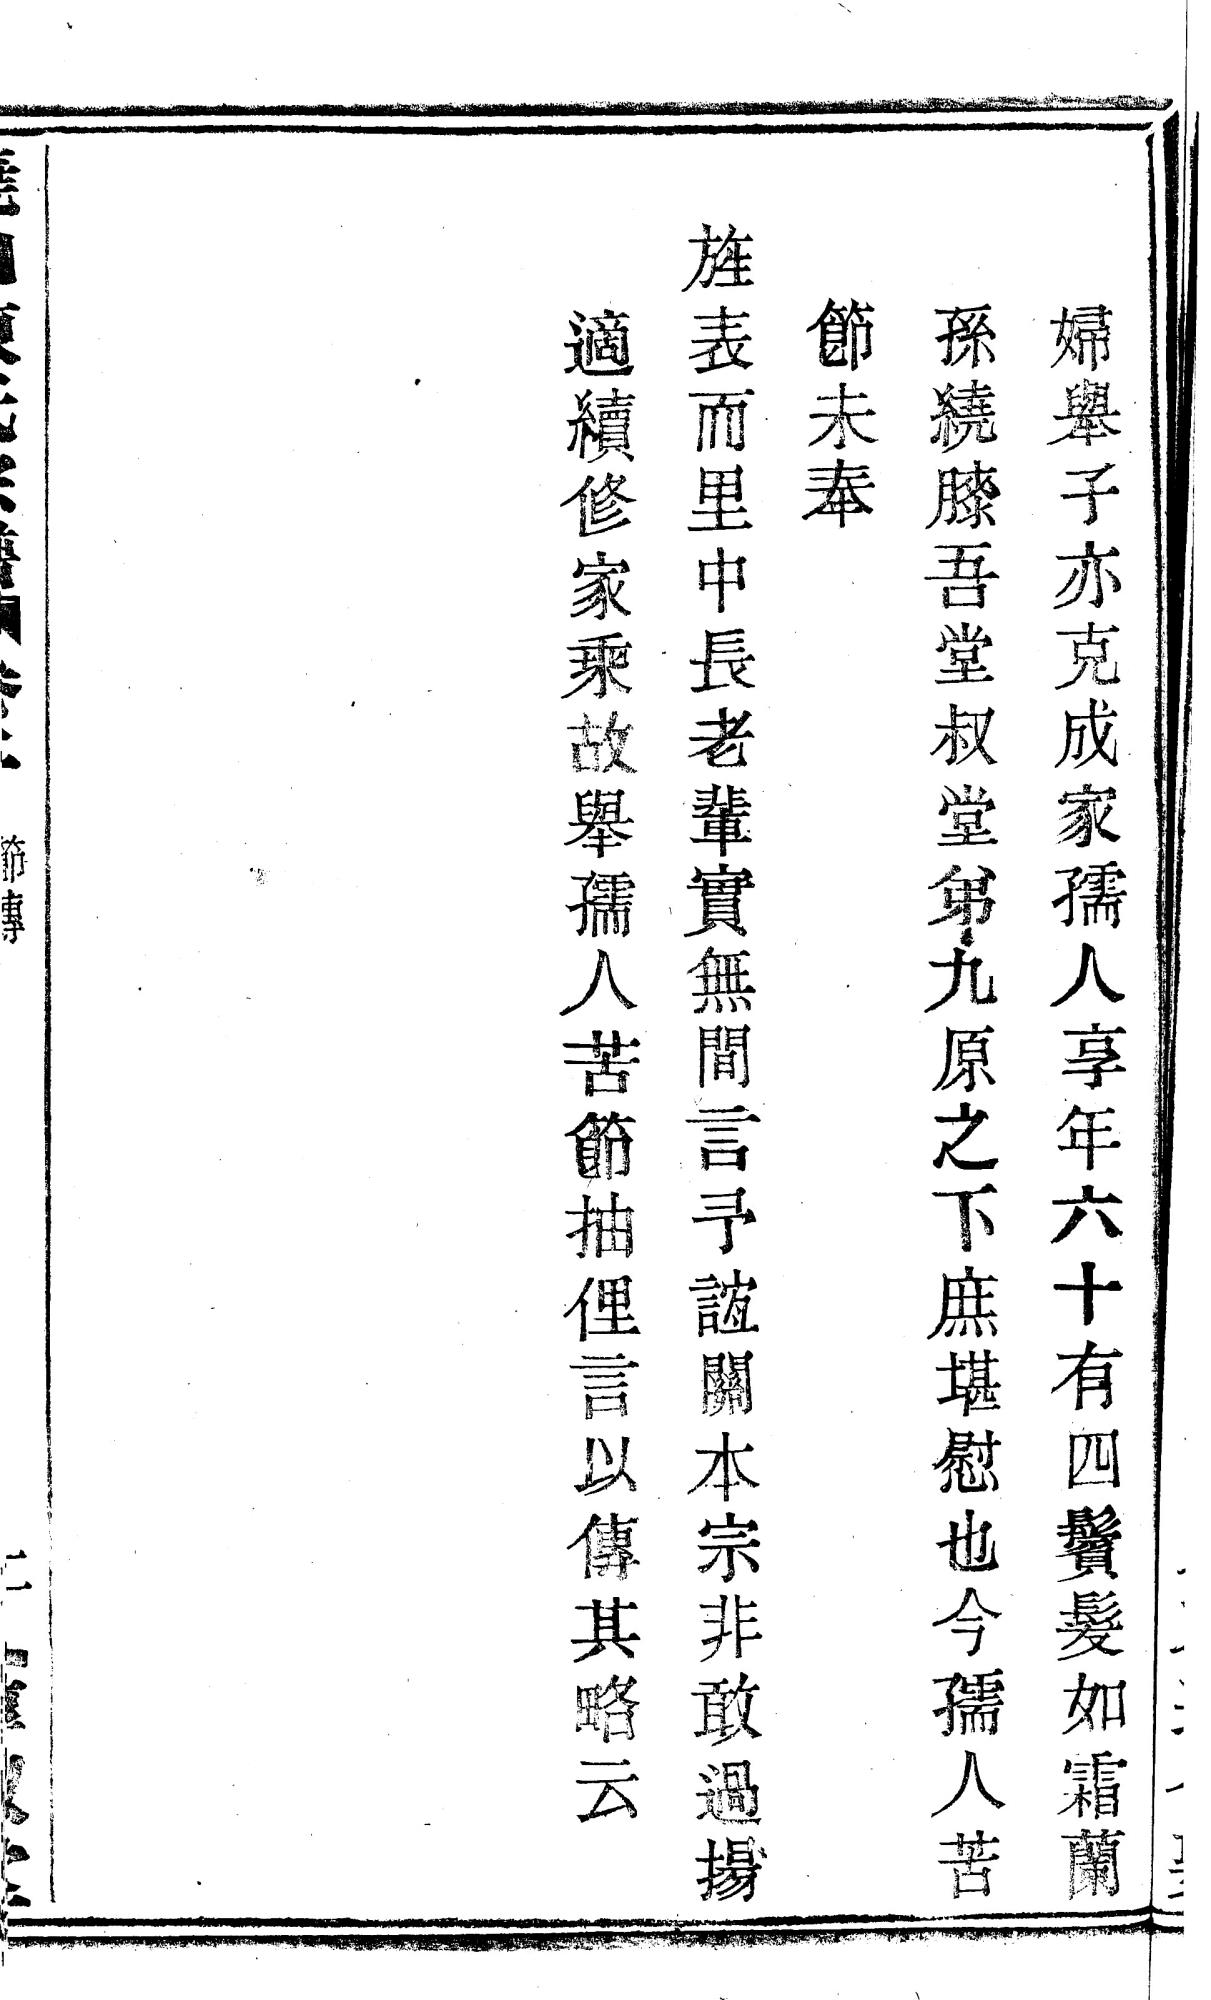 婦舉子亦克成家孺人享年六十有四鬢髮如霜蘭
孫繞膝吾堂叔堂弟九原之下庶堪慰也今孺人苦
節未奉
旌表而里中長老輩實無間言予誼關本宗非敢過揚
適續修家乘故舉孺人苦節抽俚言以傳其略云
節傳